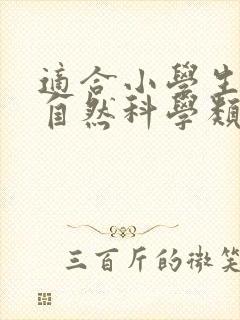 適合小學生
自然科學類
三百斤的微笑